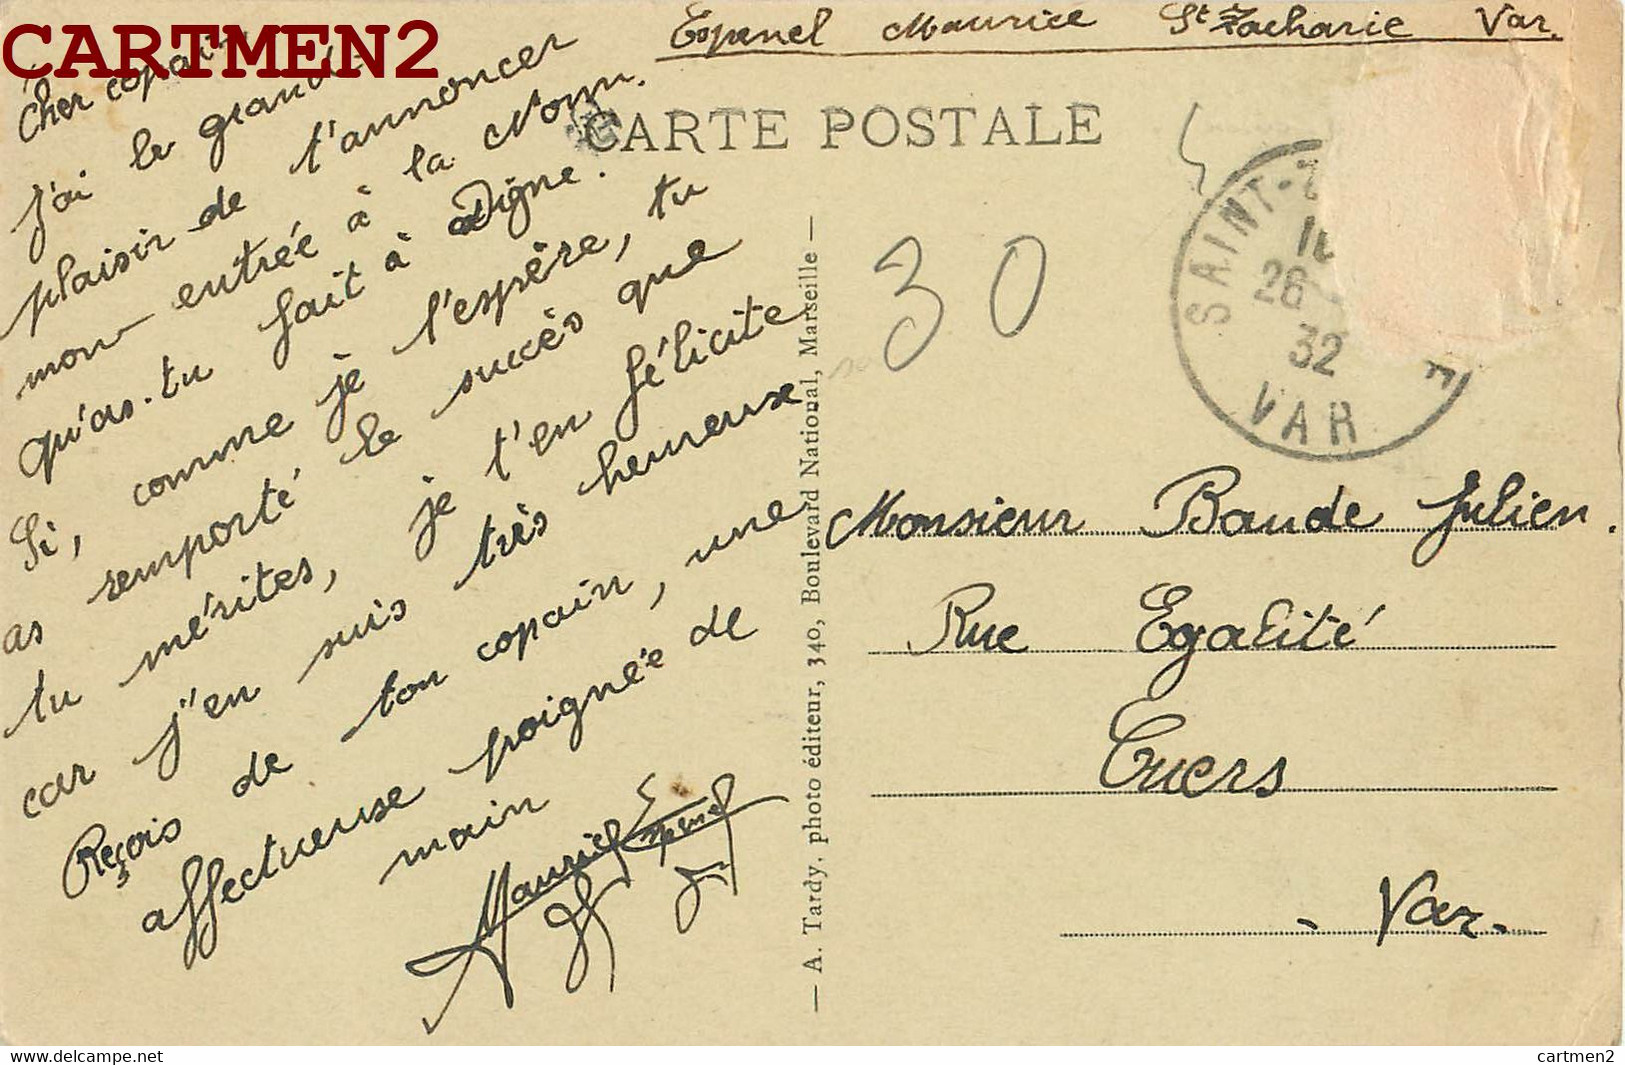 CARTMEN2
Espenel Maurice St Zacharie Var.
CARTE POSTALE
Cher copain
J'ai le grand
plaisir de t'annoncer
mon entrée à la Norm.
qu'as-tu fait à Digne.
Si, comme je l'espère, tu
as remporté le succès que
tu mérites, je t'en félicite
car j'en suis très heureux
Reçois de ton copain, une
affectueuse poignée de
main
Maurice Espenel
— A. Tardy, photo éditeur, 340, Boulevard National, Marseille —
30
SAINT-Z
26
32
VAR
E
Monsieur Baude Julien.
Rue Egalité
Cuers
- Var.-
delcampe.net
cartmen2